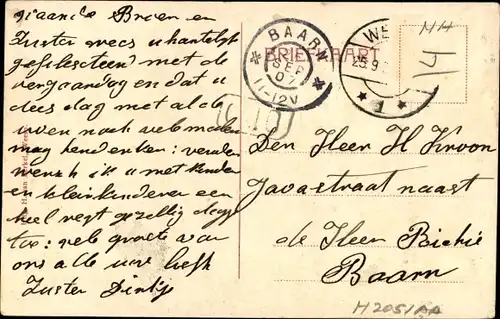 Broer en
Zuster wees u hartelijk
gefeliciteerd met de
verjaardag en dat u
dees dag met al de
uwen nach veb malen
mag herdenken: verder
wensch ik u met kinderen
en kleinkinderen een
heel regt gezellig dagje
toe: veb groete van
ons alle uw liefh
Zuster Dirkje
BAARN
SEP
07
11-12V
BRIEFKAART
WE
25.9
1
NH
14
Den Heer H Kroon
Javastraat naast
de Heer
Baarn
H2051AA